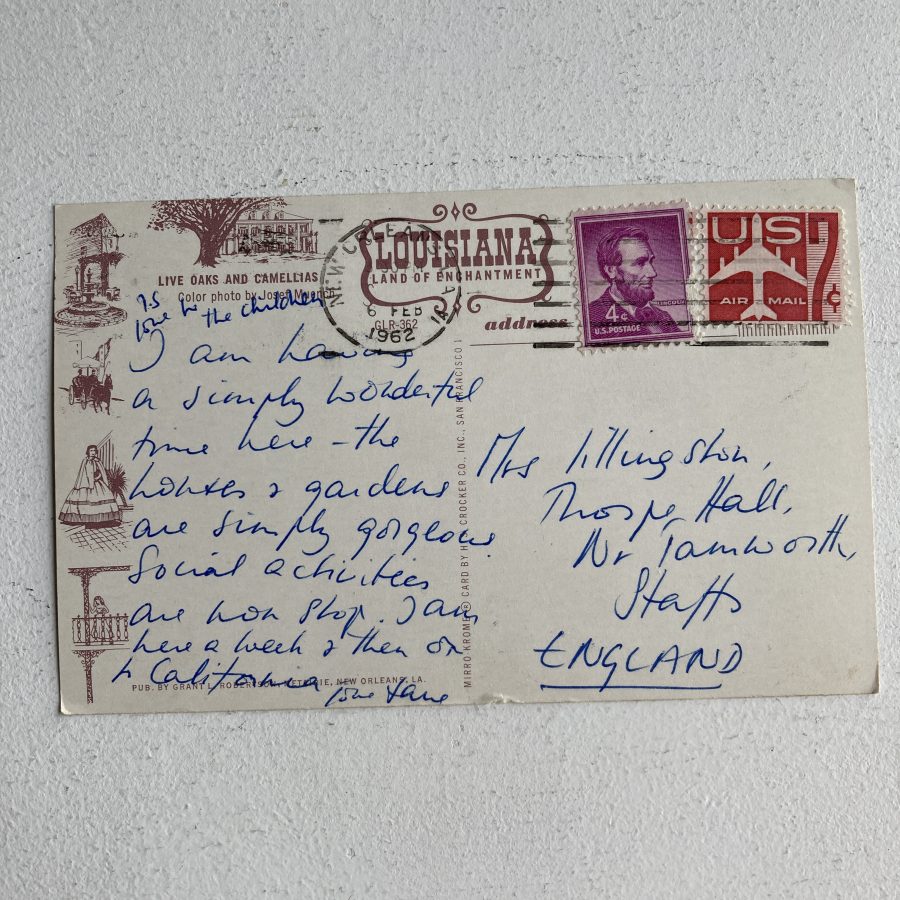 LIVE OAKS AND CAMELLIAS
Color photo by Josef Muench
LOUISIANA
LAND OF ENCHANTMENT
GLR-362
NEW ORLEANS
6 FEB
1962
address
4¢
LINCOLN
U.S. POSTAGE
US
AIR MAIL
7¢
P.S
love to the children
I am having
a simply wonderful
time here - the
houses & gardens
are simply gorgeous.
Social activities
are non stop. I am
here a week & then on
to California
love Jane
PUB. BY GRANT L. ROBERTSON, METAIRIE, NEW ORLEANS, LA.
MIRRO-KROME® CARD BY H.S. CROCKER CO., INC., SAN FRANCISCO 1
Mrs Lillingston,
Thorpe Hall,
Nr Tamworth,
Staffs
ENGLAND